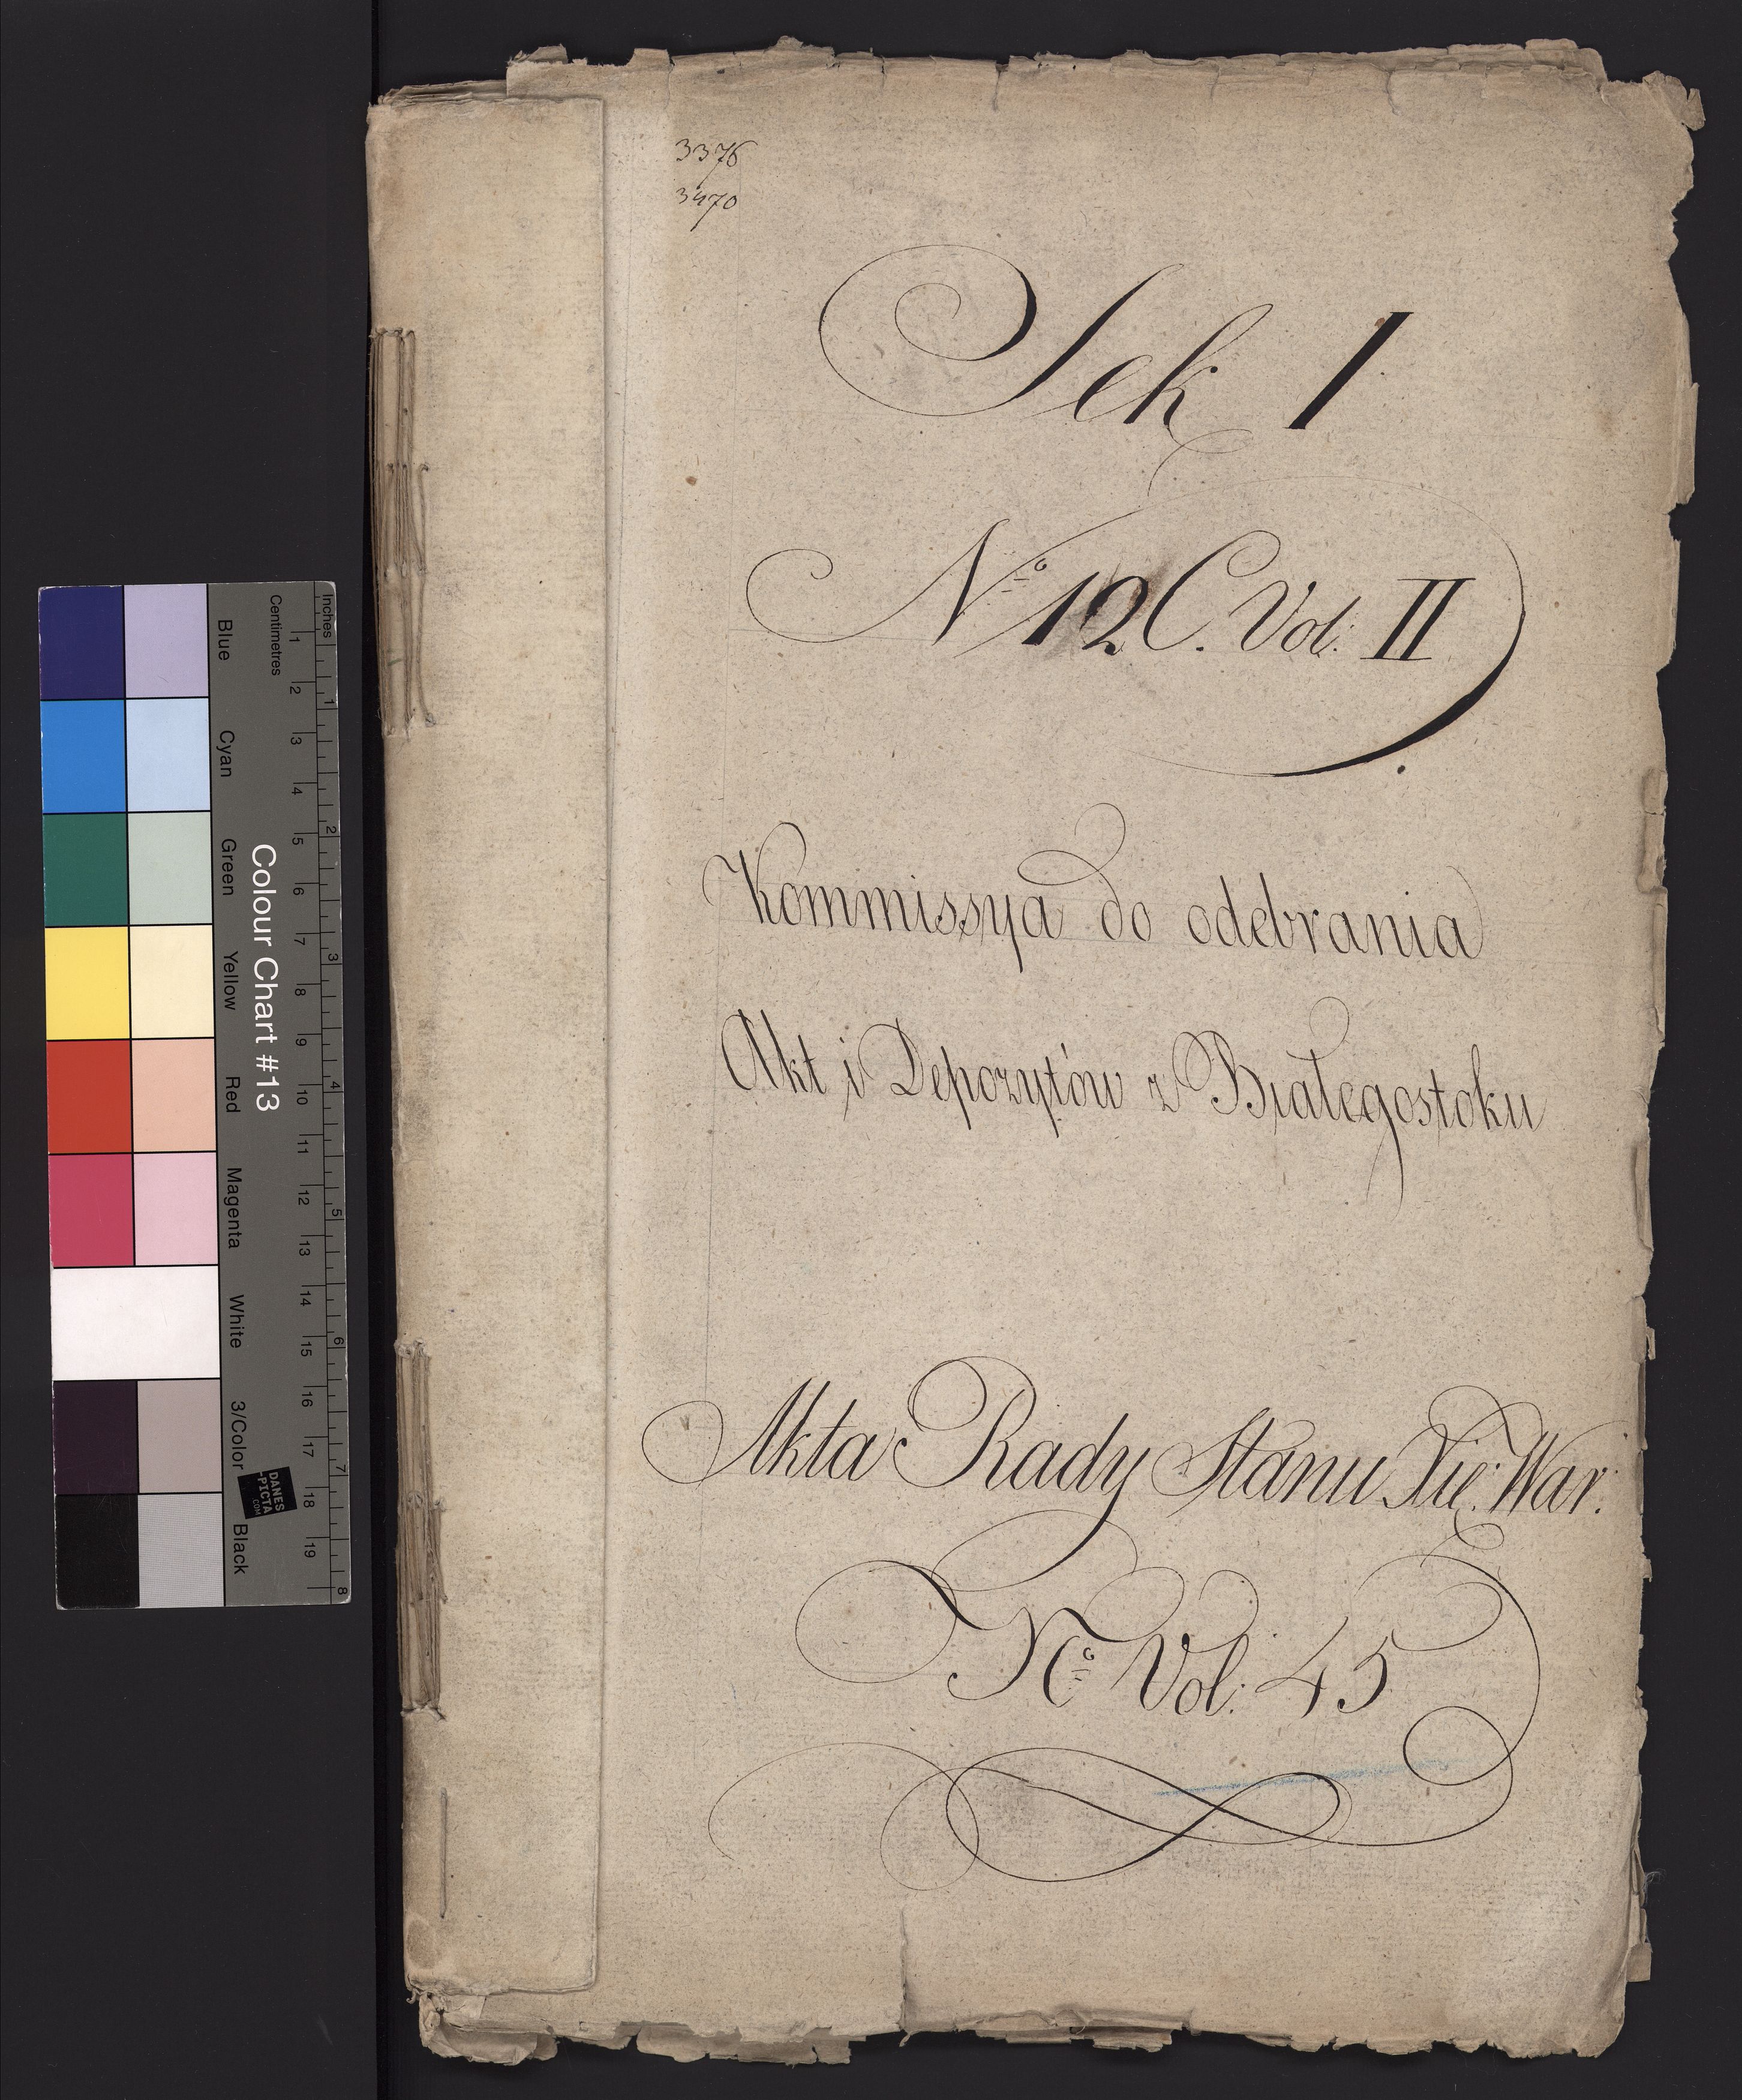 3376
3470
Sek I
Nº 12 C. Vol: II
Kommissya do odebrania
Akt i Depozytów z Białegostoku
Akta Rady Stanu Xię: War:
Nº Vol: 45
Inches
Centimetres
1 2 3 4 5 6 7 8 9 10 11 12 13 14 15 16 17 18 19
1 2 3 4 5 6 7 8
Colour Chart #13
Blue Cyan Green Yellow Red Magenta White 3/Color Black
DANES
-PICTA
.COM